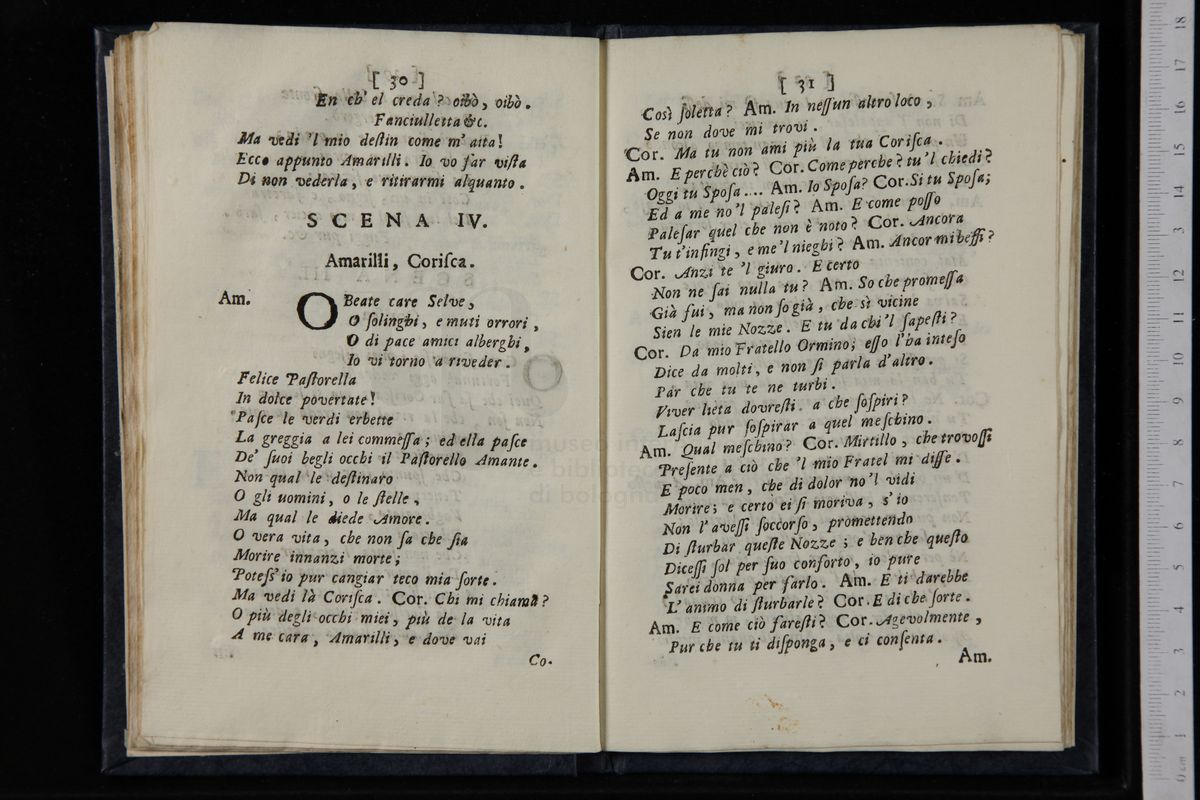 [ 30 ]
En ch' el creda ? oibò, oibò.
Fanciulletta &c.
Ma vedi 'l mio deſtin come m' aita!
Ecco appunto Amarilli. Io vo far viſta
Di non vederla, e ritirarmi alquanto.
SCENA IV.
Amarilli, Coriſca.
Am. O Beate care Selve,
O ſolinghi, e muti orrori,
O di pace amici alberghi,
Io vi torno a riveder.
Felice Paſtorella
In dolce povertate!
Paſce le verdi erbette
La greggia a lei commeſſa; ed ella paſce
De' ſuoi begli occhi il Paſtorello Amante.
Non qual le deſtinaro
O gli uomini, o le ſtelle,
Ma qual le diede Amore.
O vera vita, che non ſa che ſia
Morire innanzi morte;
Poteſs' io pur cangiar teco mia ſorte.
Ma vedi là Coriſca. Cor. Chi mi chiama?
O più degli occhi miei, più de la vita
A me cara, Amarilli, e dove vai
Co.
[ 31 ]
Così ſoletta? Am. In neſſun altro loco,
Se non dove mi trovi.
Cor. Ma tu non ami più la tua Coriſca.
Am. E perchè ciò? Cor. Come perche? tu 'l chiedi?
Oggi tu Spoſa.... Am. Io Spoſa? Cor. Si tu Spoſa;
Ed a me no 'l paleſi? Am. E come poſſo
Paleſar quel che non è noto? Cor. Ancora
Tu t'infingi, e me 'l nieghi? Am. Ancor mi beffi?
Cor. Anzi te 'l giuro. E certo
Non ne ſai nulla tu? Am. So che promeſſa
Già fui, ma non ſo già, che sì vicine
Sien le mie Nozze. E tu da chi 'l ſapeſti?
Cor. Da mio Fratello Ormino; eſſo l'ha inteſo
Dice da molti, e non ſi parla d'altro.
Par che tu te ne turbi.
Viver lieta dovreſti. a che ſoſpiri?
Laſcia pur ſoſpirar a quel meſchino.
Am. Qual meſchino? Cor. Mirtillo, che trovoſſi
Preſente a ciò che 'l mio Fratel mi diſſe.
E poco men, che di dolor no 'l vidi
Morire; e certo ei ſi moriva, s' io
Non l' aveſſi ſoccorſo, promettendo
Di ſturbar queſte Nozze; e ben che queſto
Diceſſi ſol per ſuo conforto, io pure
Sarei donna per farlo. Am. E ti darebbe
L' animo di ſturbarle? Cor. E di che ſorte.
Am. E come ciò fareſti? Cor. Agevolmente,
Pur che tu ti diſponga, e ci conſenta.
Am.
museo in
biblioteca
di bologna
0 cm 1 2 3 4 5 6 7 8 9 10 11 12 13 14 15 16 17 18